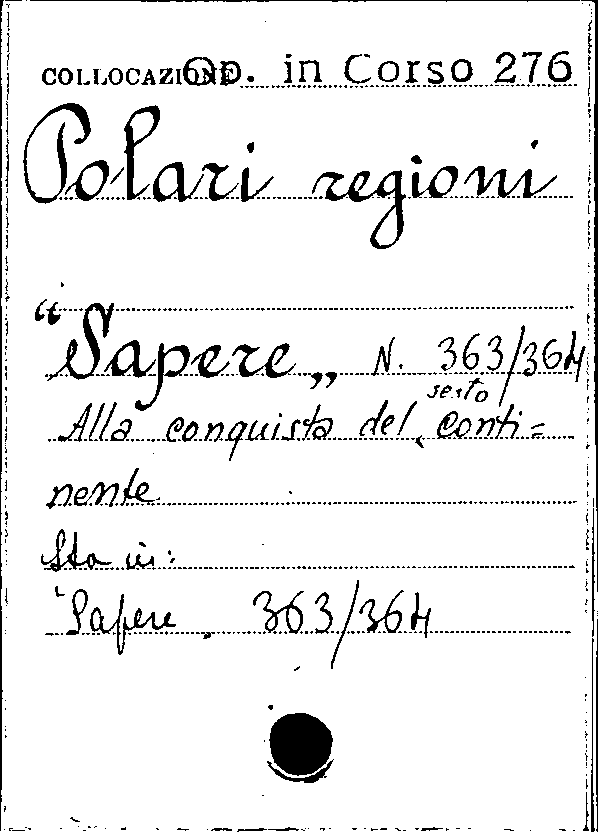 COLLOCAZIONE Op. in Corso 276
Polari regioni
"Sapere„ N. 363/364
Alla conquista del sesto conti=
nente
Sta in:
"Sapere. 363/364